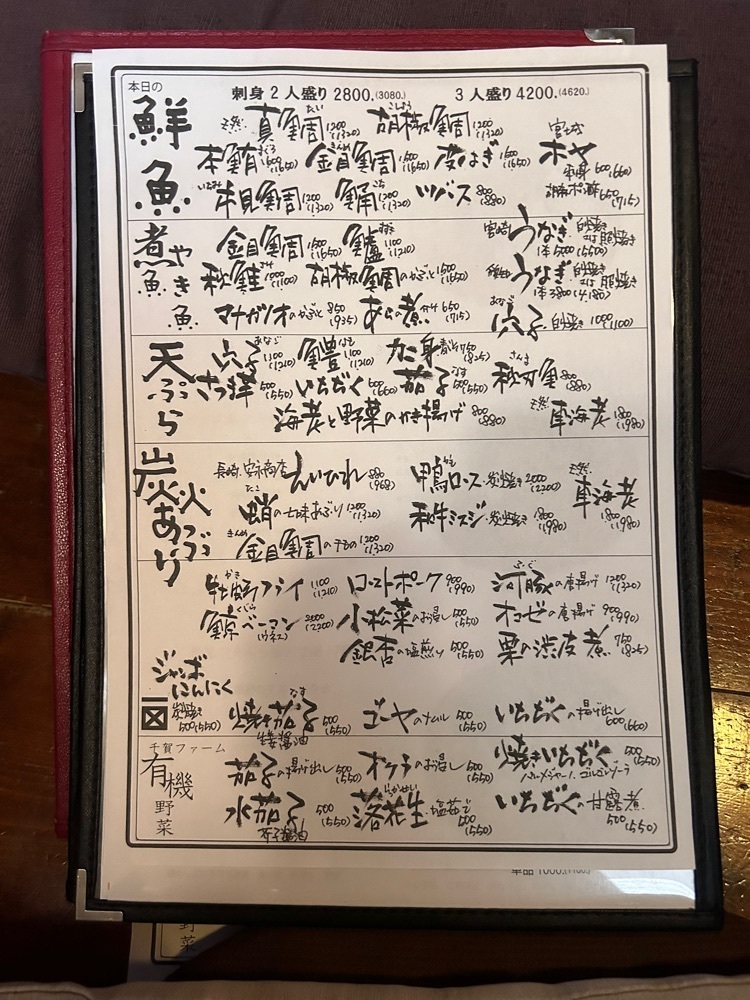 本日の
鮮魚
刺身2人盛り 2800.(3080.) 3人盛り 4200.(4620.)
天然 真鯛 たい 1200 (1320) 胡椒鯛 こしょう 1200 (1320) 宮城
本鮪 まぐろ 1500 (1650) 金目鯛 きんめ 1500 (1650) 皮はぎ 1500 (1650) ホヤ 刺身 600 (660)
1200 (1320) 鯒 こち 1200 (1320) ツバス 800 (880) 胡麻ポン酢 650 (715)
煮魚 やき魚
金目鯛 1500 (1650) 鱸 すずき 1100 (1210) 宮崎 うなぎ 白焼き 又は 蒲焼き 1本 5000 (5500)
秋鮭 1000 (1100) 胡椒鯛のかぶと 1500 (1650) うなぎ 白焼き 又は 蒲焼き 1本 3800 (4180)
マナガツオのかぶと 850 (935) あらの煮付け 650 (715) 穴子 あなご 白焼き 1000 (1100)
天ぷら
穴子 あなご 1100 (1210) 鱧 はも 1100 (1210) かに身 750 (825) さんま
さつま芋 500 (550) いちぢく 600 (660) 茄子 なす 500 (550) 秋刀魚 800 (880)
海老と野菜のかき揚げ 800 (880) 天然 車海老 1800 (1980)
炭火あぶり
長崎 えいひれ 880 (968) 鴨ロース 炭焼き 2000 (2200) 天然 車海老 1800 (1980)
蛸 たこ の七味あぶり 1200 (1320) 和牛ミスジ 炭焼き 1800 (1980)
金目鯛 きんめ の干もの 1200 (1320)
牡蠣フライ かき 1100 (1210) ローストポーク 900 (990) 河豚 ふぐ の唐揚げ 1200 (1320)
鯨ベーコン くじら (ウネス) 2000 (2200) 小松菜のお浸し 500 (550) オコゼの唐揚げ 900 (990)
銀杏の塩煎り 500 (550) 栗の渋皮煮 750 (825)
ジャンボにんにく
炭焼き 500 (550) 焼き茄子 なす 500 (550) 生姜醤油 ゴーヤのナムル 500 (550) いちぢくの揚げ出し 600 (660)
千賀ファーム
有機野菜
茄子の揚げ出し 500 (550) オクラのお浸し 500 (550) 焼きいちぢく 500 (550) パルメジャーノ、ゴルゴンゾーラ
水茄子 500 (550) 芥子醤油 落花生 らっかせい 塩茹で 500 (550) いちぢくの甘露煮 500 (550)
単品 1000.(1100.)
野菜